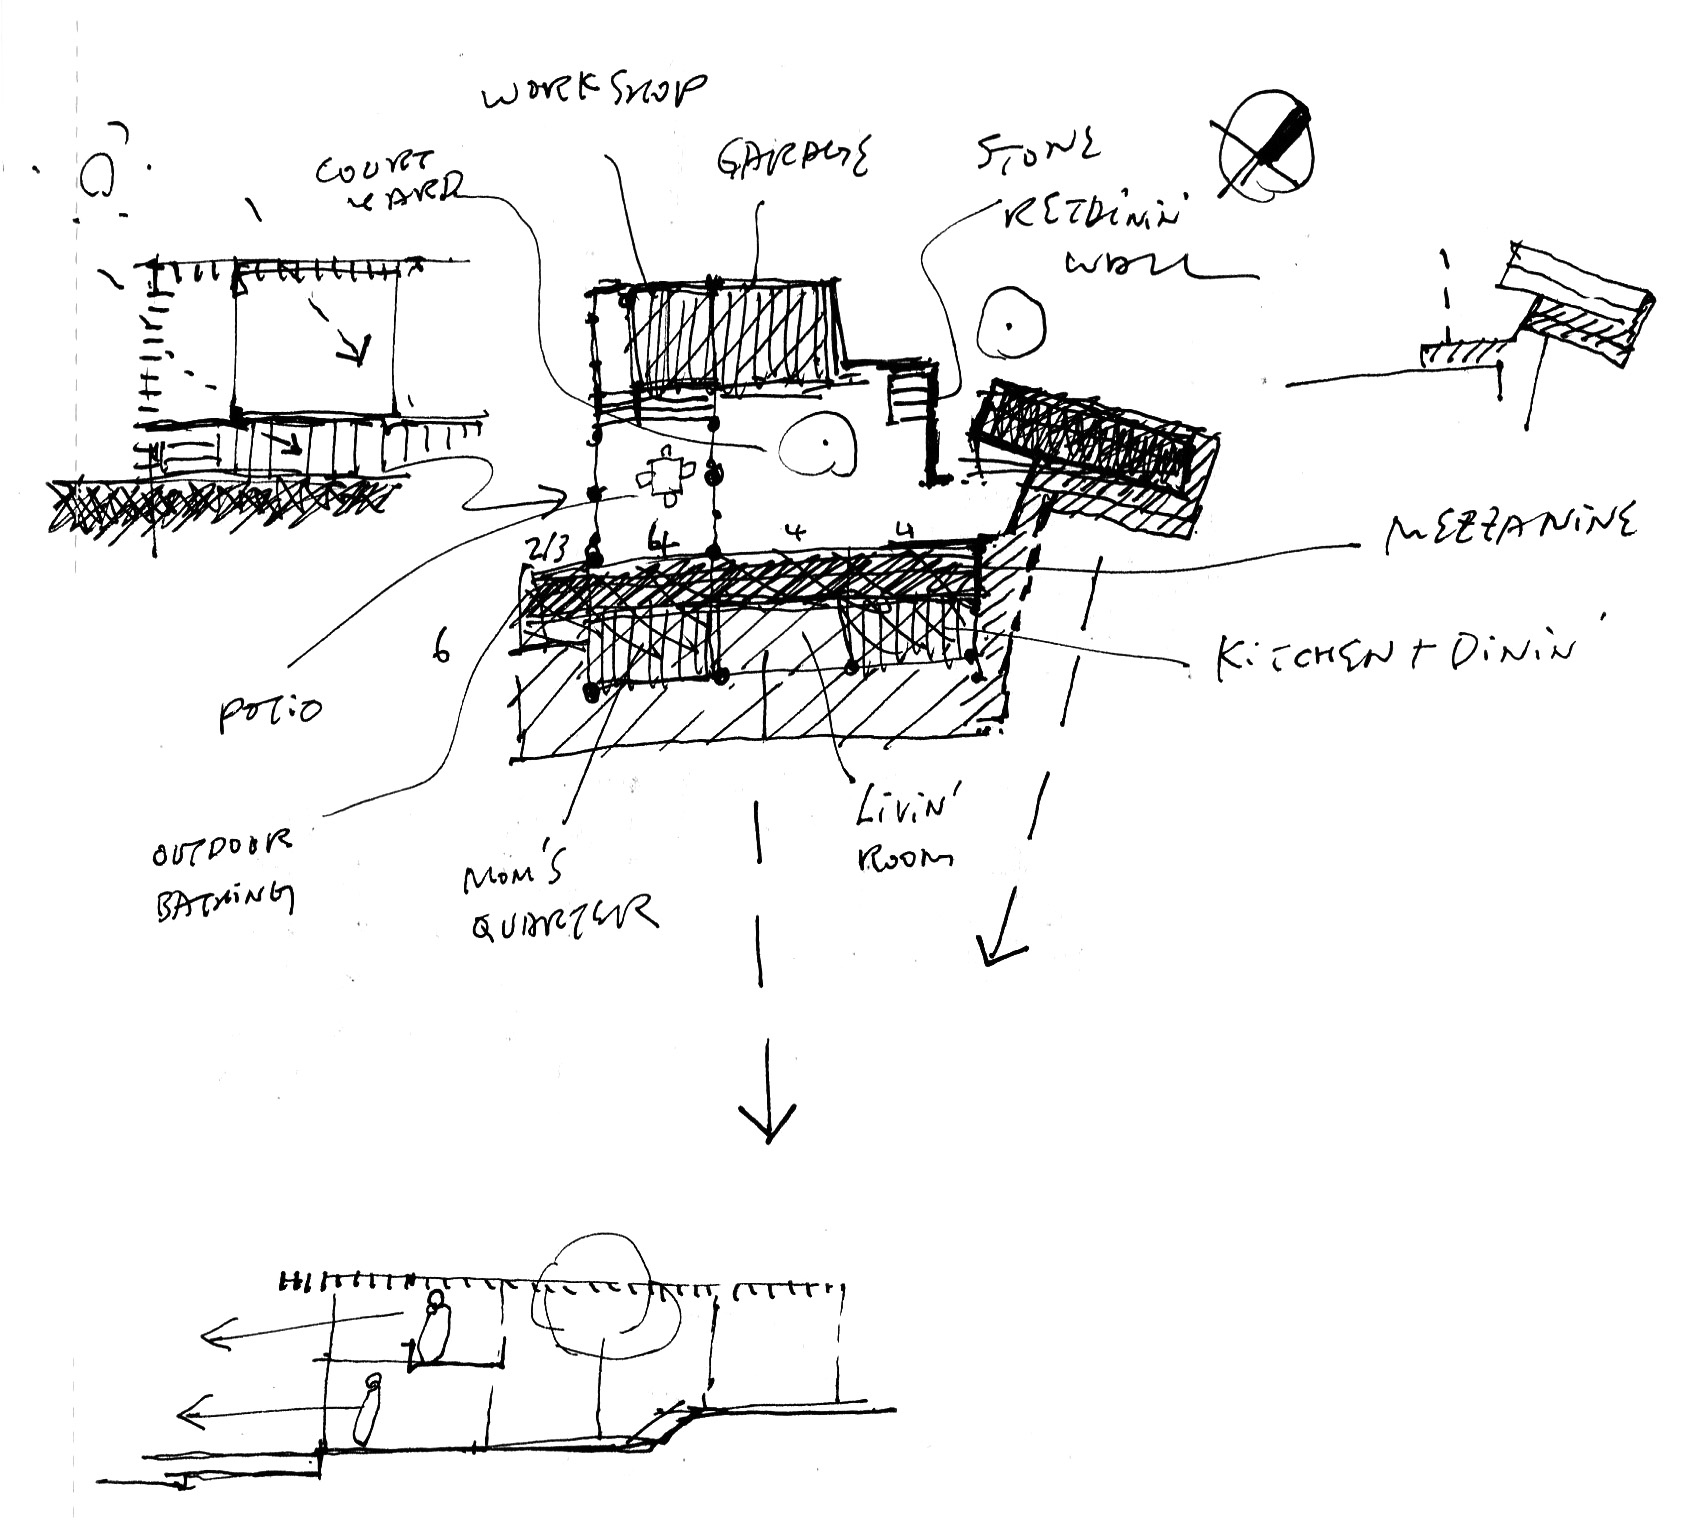 WORKSHOP
COURT
YARD
GARAGE
STONE
RETAININ'
WALL
2/3 4 4 4
6
MEZZANINE
KITCHEN + DININ'
PATIO
LIVIN'
ROOM
OUTDOOR
BATHING
MOM'S
QUARTER